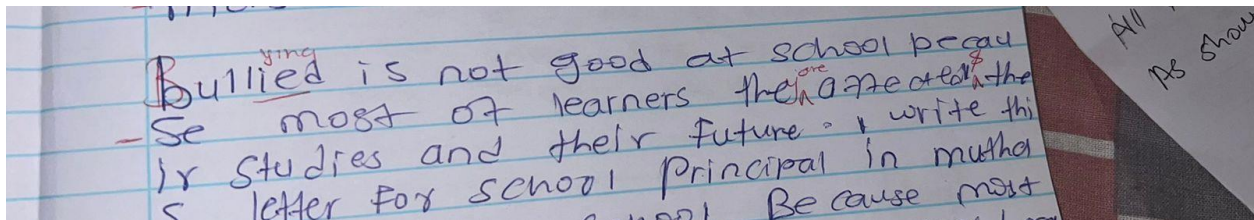 Bullied is not good at school becau
ying
se most of learners they are affected the
ir studies and their future. I write thi
s letter for school principal in mutha
Because most
All
As show